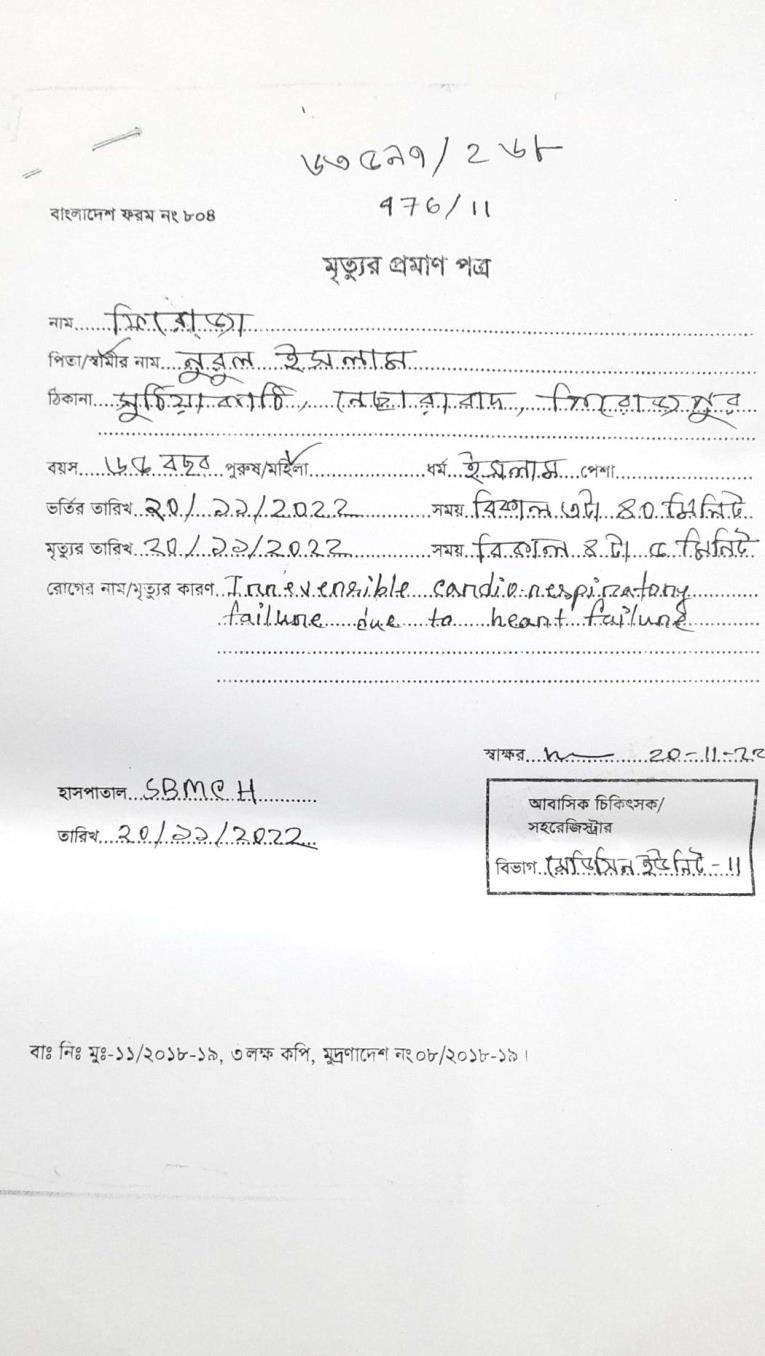 ৬৩৫৯৭/২৬৮
976/11
বাংলাদেশ ফরম নং ৮০৪
মৃত্যুর প্রমাণ পত্র
নাম ফিরোজা
পিতা/স্বামীর নাম নুরুল ইসলাম
ঠিকানা সুঠিয়াকাঠি, নেছারাবাদ, পিরোজপুর
বয়স ৬৫ বছর পুরুষ/মহিলা ধর্ম ইসলাম পেশা
ভর্তির তারিখ ২০/১১/২০২২ সময় বিকাল ৩টা ৪০ মিনিট
মৃত্যুর তারিখ ২০/১১/২০২২ সময় বিকাল ৪ টা ৫ মিনিট
রোগের নাম/মৃত্যুর কারণ Irreversible cardio-respiratory
failure due to heart failure
স্বাক্ষর 20-11-22
হাসপাতাল SBMCH
আবাসিক চিকিৎসক/
সহরেজিস্ট্রার
তারিখ ২০/১১/২০২২
বিভাগ মেডিসিন ইউনিট - II
বাঃ নিঃ মুঃ-১১/২০১৮-১৯, ৩ লক্ষ কপি, মুদ্রণাদেশ নং ০৮/২০১৮-১৯।